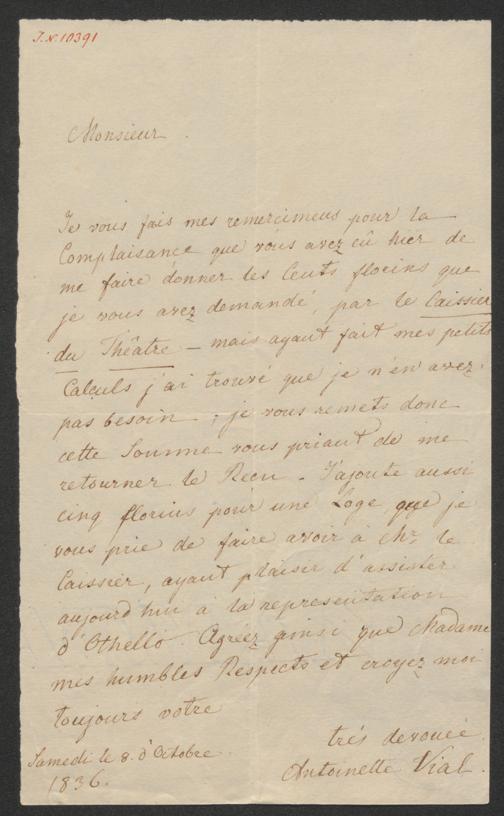 J.N.10391
Monsieur
Je vous fais mes remercimens pour la
Complaisance que vous avez eû hier de
me faire donner les Cents florins que
je vous avez demandé, par le Caissier
du Théâtre – mais ayant fait mes petits
Calculs j'ai trouvé que je n'en avez
pas besoin ; je vous remets donc
cette Somme vous priant de me
retourner le Recu – J'ajoute aussi
cinq florins pour une Loge, que je
vous prie de faire avoir à Mr. le
Caissier, ayant plaisir d'assister
aujourd'hui à la representation
d'Othello. Agréez ainsi que Madame
mes humbles Respects et croyez moi
toujours votre
très devouée
Samedi le 8. d'Octobre
Antoinette Vial.
1836.